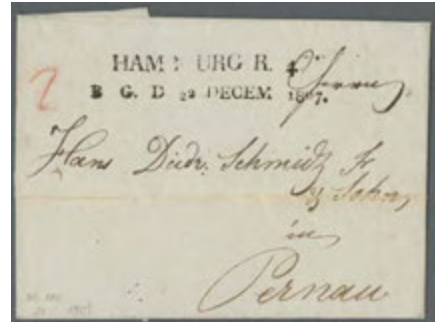 HAMBURG R. 4.
B. G. D. 22 DECEM. 1807.
Herrn
Hans Diedr. Schmidt Sr
& Sohn
in
Pernau